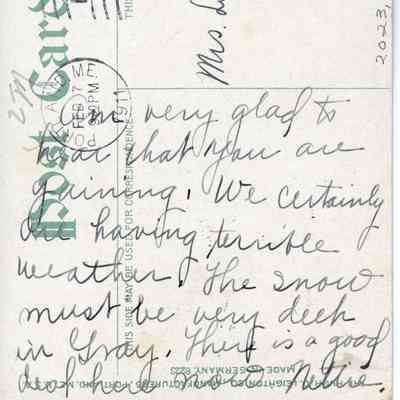 Post Card
FEB 7
9-30 PM
1911
ME
Mrs.
2023.
THIS SIDE MAY BE USED FOR CORRESPONDENCE
am very glad to
hear that you are
gaining. We certainly
are having terrible
weather. The snow
must be very deep
in Gray. There is a good
deal here now. Nettie.
LEIGHTON CO., MANUFACTURERS, PORTLAND, ME., U.S.A.
MADE IN GERMANY